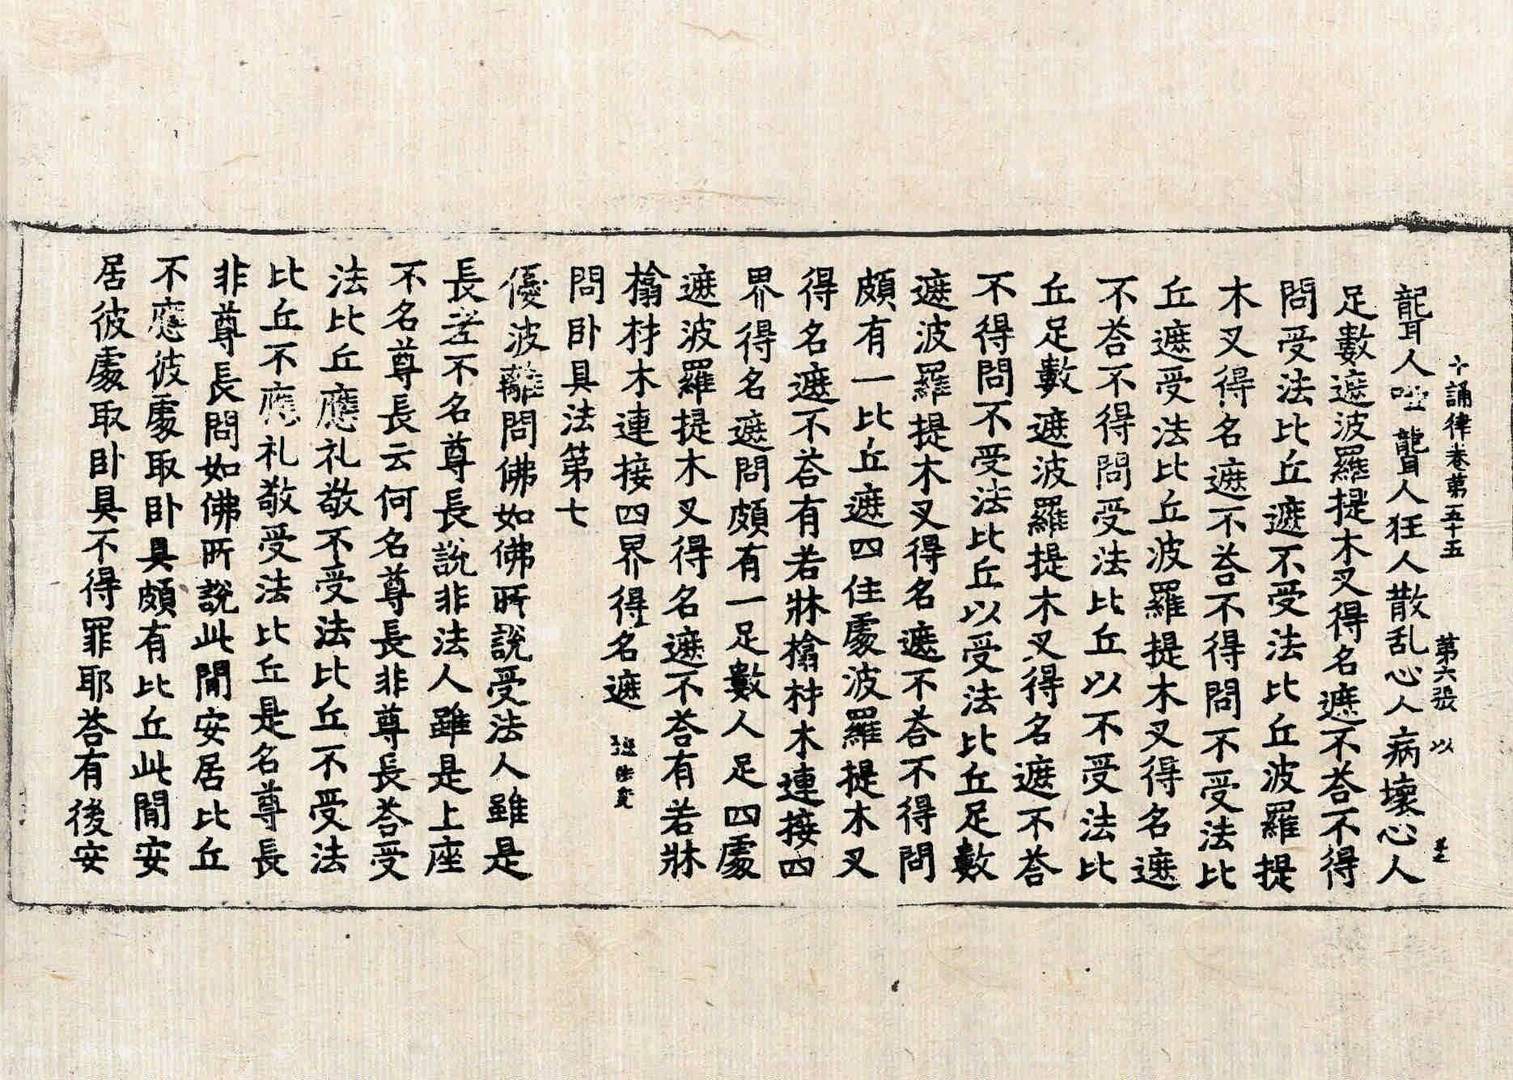 十誦律卷第五十五 第六張 以
聾人瘂聾人狂人散乱心人病壞心人
足數遮波羅提木叉得名遮不荅不得
問受法比丘遮不受法比丘波羅提
木叉得名遮不荅不得問不受法比
丘遮受法比丘波羅提木叉得名遮
不荅不得問受法比丘以不受法比
丘足數遮波羅提木叉得名遮不荅
不得問不受法比丘以受法比丘足數
遮波羅提木叉得名遮不荅不得問
頗有一比丘遮四住處波羅提木叉
得名遮不荅有若牀榻材木連接四
界得名遮問頗有一足數人足四處
遮波羅提木叉得名遮不荅有若牀
榻材木連接四界得名遮
問卧具法第七
優波離問佛如佛所說受法人雖是
長老不名尊長說非法人雖是上座
不名尊長云何名尊長非尊長荅受
法比丘應礼敬不受法比丘不受法
比丘不應礼敬受法比丘是名尊長
非尊長問如佛所說此閒安居比丘
不應彼處取卧具頗有比丘此閒安
居彼處取卧具不得罪耶荅有後安